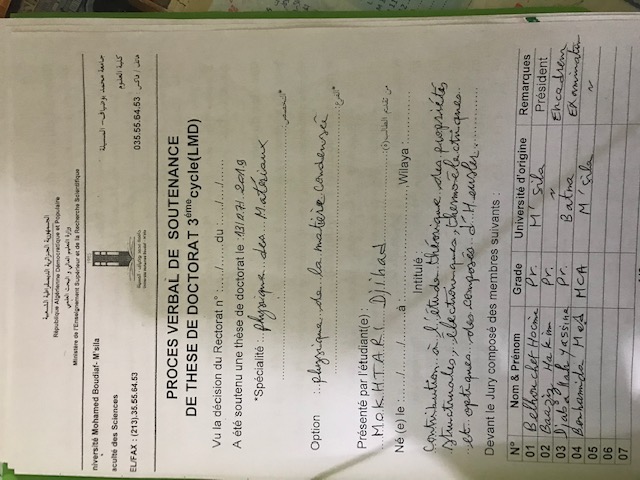 الجمهورية الجزائرية الديمقراطية الشعبية
République Algérienne Démocratique et Populaire
وزارة التعليم العالي و البحث العلمي
Ministère de l'Enseignement Supérieur et de la Recherche Scientifique
niversité Mohamed Boudiaf- M'sila
جامعة محمد بوضياف - المسيلة
aculté des Sciences
كلية العلوم
EL/FAX : (213).35.55.64.53
035.55.64.53 هاتف / فاكس
PROCES VERBAL DE SOUTENANCE
DE THESE DE DOCTORAT 3ème cycle(LMD)
Vu la décision du Rectorat n° :...../.....du ...../...../.....
A été soutenu une thèse de doctorat le : 13/07/2019
*Spécialité : physique des Matériaux :التخصص*
Option : physique de la matière condensée :الفرع*
Présenté par l'étudiant(e) : من تقديم الطالب(ة)
MOKHTARI Djihad
Né (e) le :...../...../.....à :..........Wilaya :..........
Intitulé
Contribution à l'étude théorique des propriétés
structurales, électroniques, thermo-électriques
et optiques des composés d'Heusler.
Devant le Jury composé des membres suivants :
N° Nom & Prénom Grade Université d'origine Remarques
01 Belhouchet Hocine Pr. M'sila Président
02 Hakim Pr. " "
03 Djaballah Yassine Pr. Batna Encadreur
04 Benhamida Med MCA M'sila Examinateur
05 "
06
07